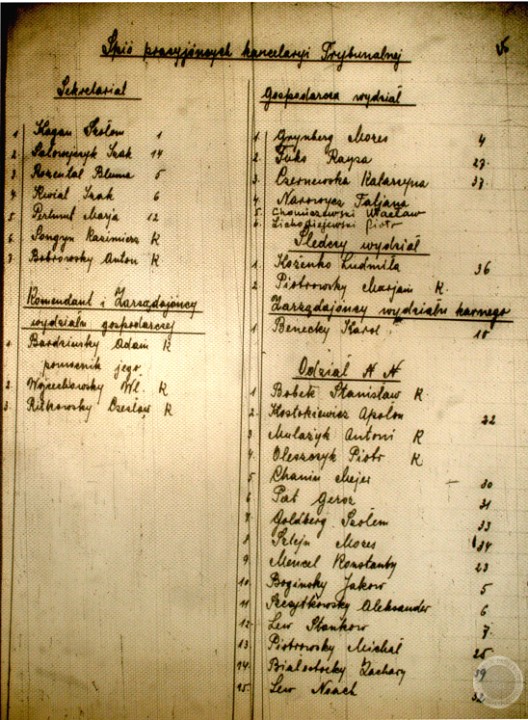 Spis pracyjóncych kancelaryi Trybunalnej
Sekretariat
1 Kagan Szolem 1
2. Salomejczyk Izak 14
3. Rozental Bluma 5
4. Kwiat Izak 6
5. Perlmut Marja 12
6. Songyn Kazimierz K
7. Bobrowsky Anton K
Komendant i Zarządzjóncy
wydziału gospodarczej
1 Bardzinsky Adam K
pomocnik jego
2. Wojciechowsky Wł. K
3. Rutkowsky Czesław K
Gospodarcza wydział
1. Grynberg Mozes 4
2. Fuks Rayza 27.
3. Czernewska Katarzyna 37.
4. Narowycz Tatjana
5. Chomiszewski Wacław
6. Piotr
Śledczy wydział
1. Kożenko Ludmiła 36
2 Piotrowsky Marjan K.
Zarządzjóncy wydziału karnego
1 Benecky Karol 18
Odział N N
1 Bobek Stanisław K.
2. Kostokiewicz Apolon 22
3 Mulażyk Antoni K
4. Oleszczyk Piotr K
5 Chanin Mejer 30
6 Pat Gersz 31
7 Goldberg Szolem 33
8 Sztejn Mozes 34
9. Mencel Konstanty 23
10. Boginsky Jakow 5
11 Szczytkowsky Aleksander 6
12. Lew Stankow 7.
13. Piotrowsky Michał 25
14. Białostocky Zachary 39
15. Lew Noach 32